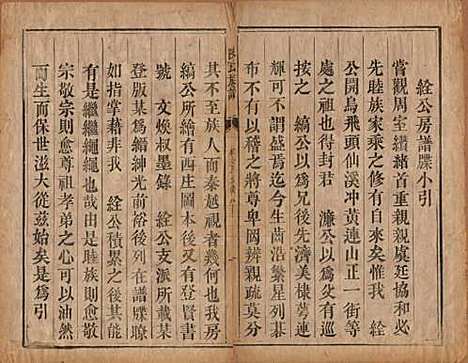 絟公房譜牒小引
嘗觀周室纘緒首重親親虞廷協和必
先睦族家乘之修有自來矣惟我 絟
公開烏飛頭仙溪冲黃連山正一街等
處之祖也得封君 濂公以為父有
按 縞公以為兄厥後先濟美棣萼連
輝可不謂盛焉迄今生齒浩繁星列碁
布不有以稽之將尊卑罔辨親疏莫分
其不至族人而秦越視者幾何我
縞公所繪有西庄圖本又有登賢書
號 文煥叔墨錄 絟公支派所載某
登版某為縉紳光前裕後在譜牒瞭
如指掌藉非我 絟公積累之 其能
有是繼繼繩繩也哉是睦族則思敬
宗敬宗則思尊祖孝弟之心可以油然
而生而保世滋大從茲始矣是為引